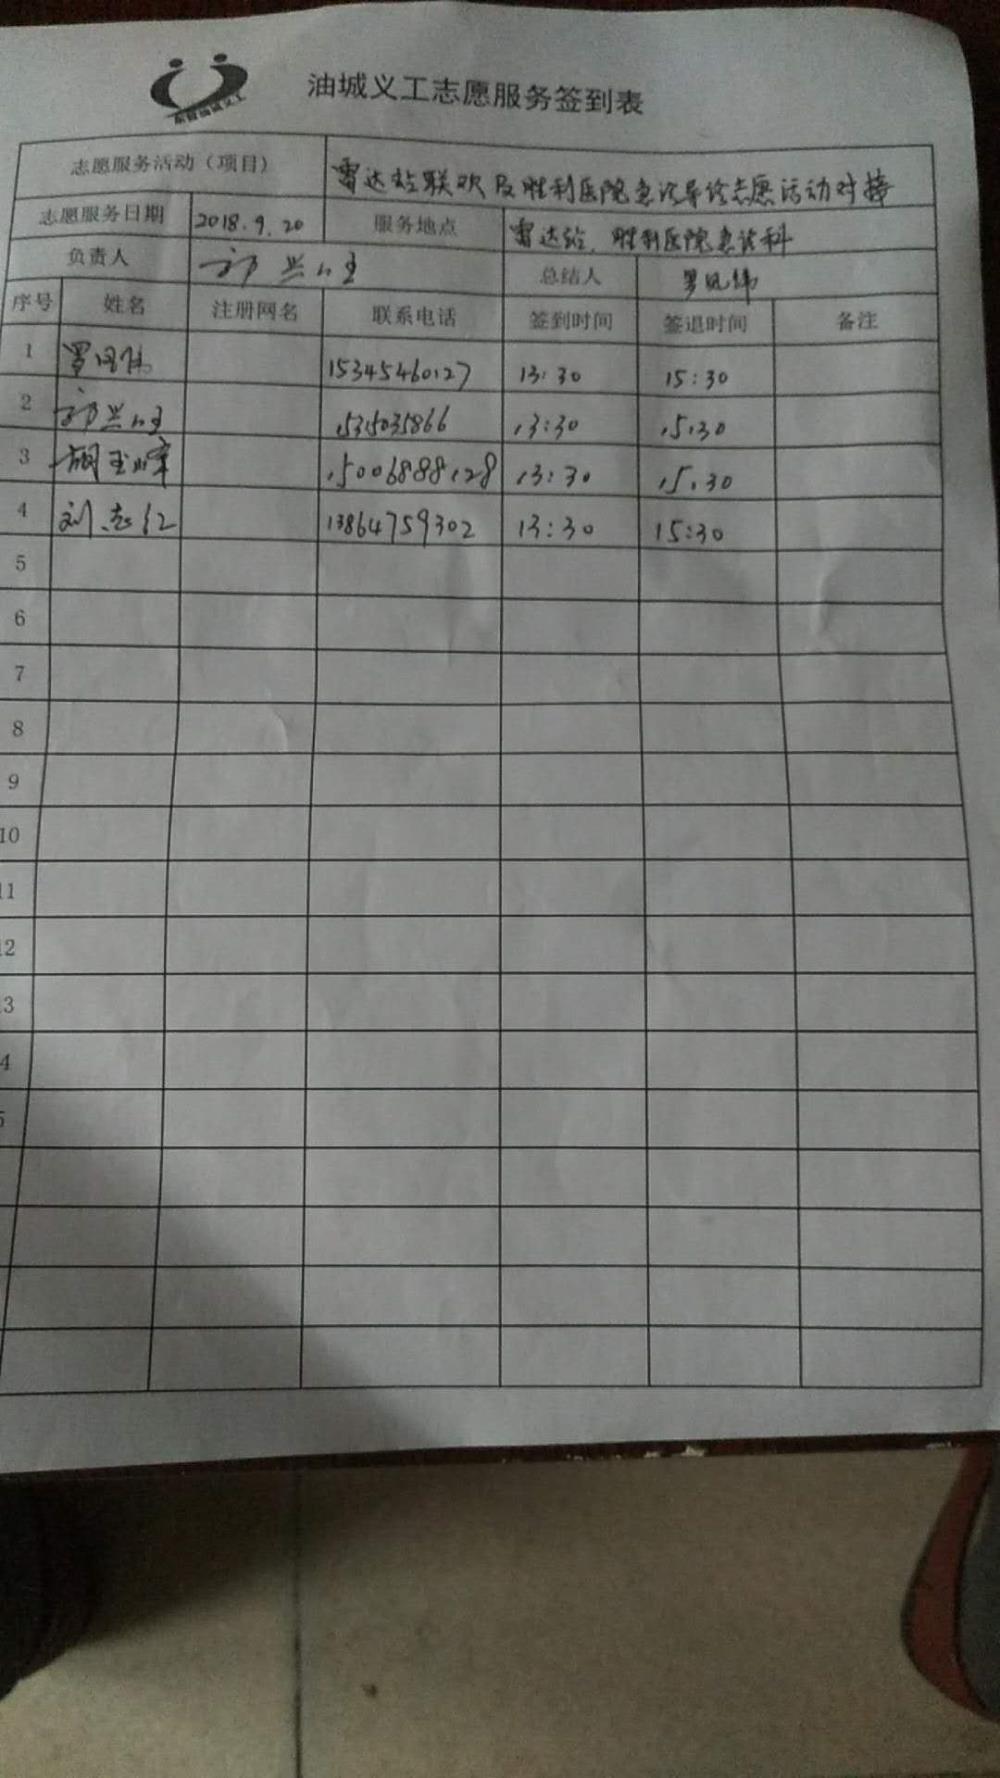 东营油城义工
油城义工志愿服务签到表
志愿服务活动（项目） 雷达站联欢及胜利医院急诊导诊志愿活动对接
志愿服务日期 2018.9.20 服务地点 雷达站、胜利医院急诊科
负责人 总结人
序号 姓名 注册网名 联系电话 签到时间 签退时间 备注
1 15345460127 13:30 15:30
2 13:30 15:30
3 15006888128 13:30 15:30
4 刘志红 13864759302 13:30 15:30
5
6
7
8
9
10
11
12
13
14
15